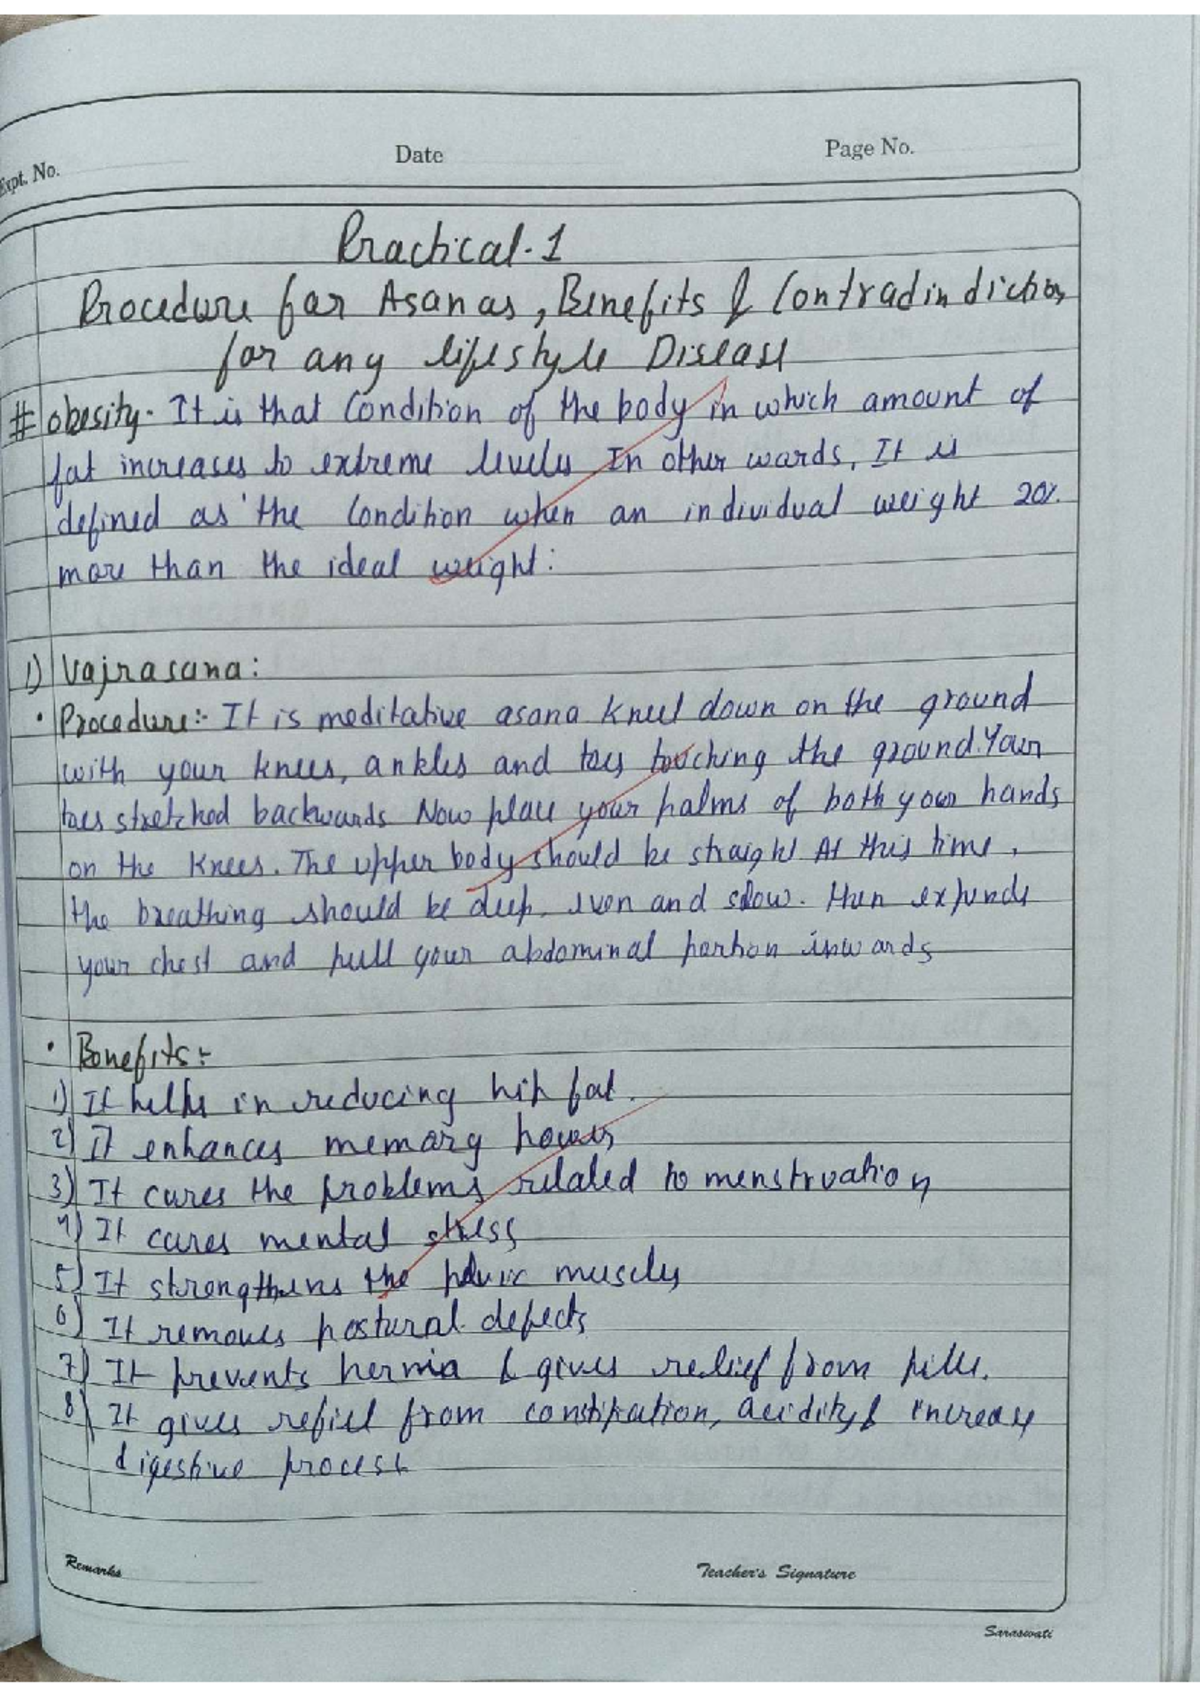 Expt. No.
Date
Page No.
Practical-1
Procedure for Asanas, Benefits & Contradindiction
for any lifestyle Disease
# Obesity- It is that Condition of the body in which amount of
fat increases to extreme levels In other words, It is
defined as the Condition when an individual weight 20%
more than the ideal weight:
1) Vajrasana:
• Procedure:- It is meditative asana kneel down on the ground
with your knees, ankles and toes touching the ground. Your
toes stretched backwards Now place your palms of both your hands
on the knees. The upper body should be straight At this time,
the breathing should be deep, even and slow. then expends
your chest and pull your abdominal portion inwards
• Benefits:-
1) It helps in reducing hip fat.
2) It enhances memory powers
3) It cures the problems related to menstruation
4) It cures mental stress
5) It strengthens the pelvic muscles
6) It removes postural defects
7) It prevents hernia & gives relief from piles.
8) It gives refiel from constipation, acidity & increase
digestive process
Remarks
Teacher's Signature
Saraswati